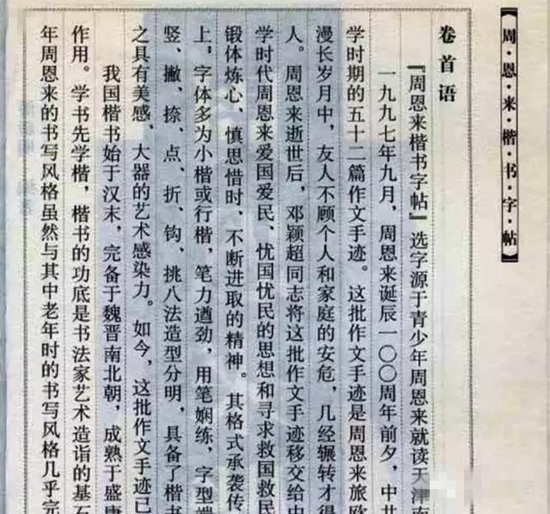 《周·恩·来·楷·书·字·帖》
卷首语
『周恩来楷书字帖』选字源于青少年周恩来就读天津南
一九九七年九月，周恩来诞辰一〇〇周年前夕，中共
学时期的五十二篇作文手迹。这批作文手迹是周恩来旅欧
漫长岁月中，友人不顾个人和家庭的安危，几经辗转才得
人。周恩来逝世后，邓颖超同志将这批作文手迹移交给中
学时代周恩来爱国爱民、忧国忧民的思想和寻求救国救民
锻体炼心、慎思惜时、不断进取的精神。其格式承袭传
上，字体多为小楷或行楷，笔力遒劲，用笔娴练，字型端
竖、撇、捺、点、折、钩、挑八法造型分明，具备了楷书
之具有美感、大器的艺术感染力。如今，这批作文手迹已
我国楷书始于汉末，完备于魏晋南北朝，成熟于盛唐
作用。学书先学楷，楷书的功底是书法家艺术造诣的基石
年周恩来的书写风格虽然与其中老年时的书写风格几乎完